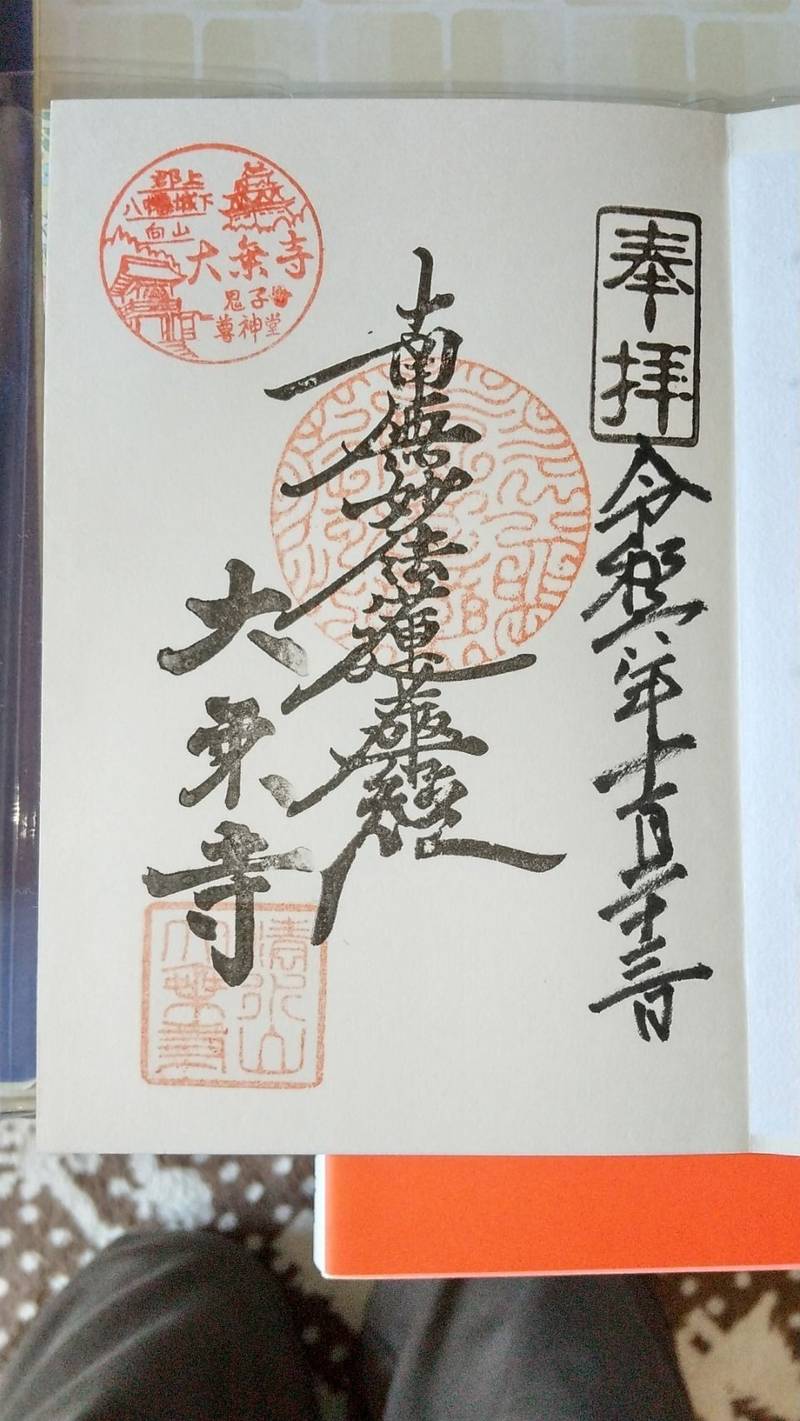 奉拝
令和六年十一月二十三日
南無妙法蓮華経
大乗寺
郡上
八幡城下
向山
大乗寺
鬼子
尊神堂
清水山
大乗寺